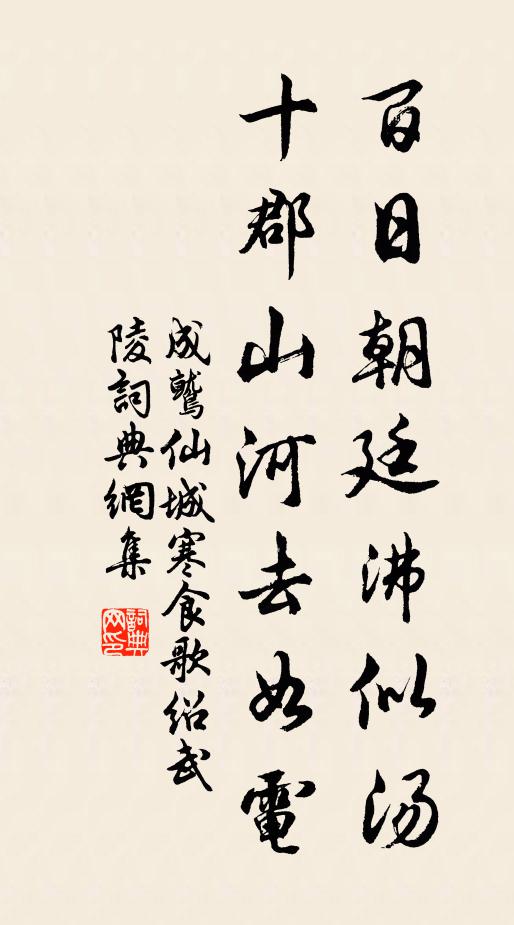 百日朝廷沸似汤
十郡山河去如電
成鷲仙城寒食歌紹武
陵詞典網集
詞典網印